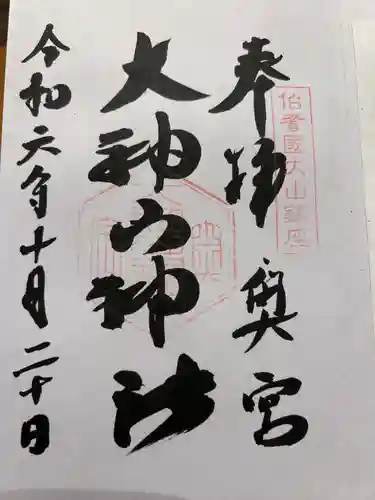 奉拝 奥宮
伯耆國大山鎮座
大神山神社
令和六年十月二十日